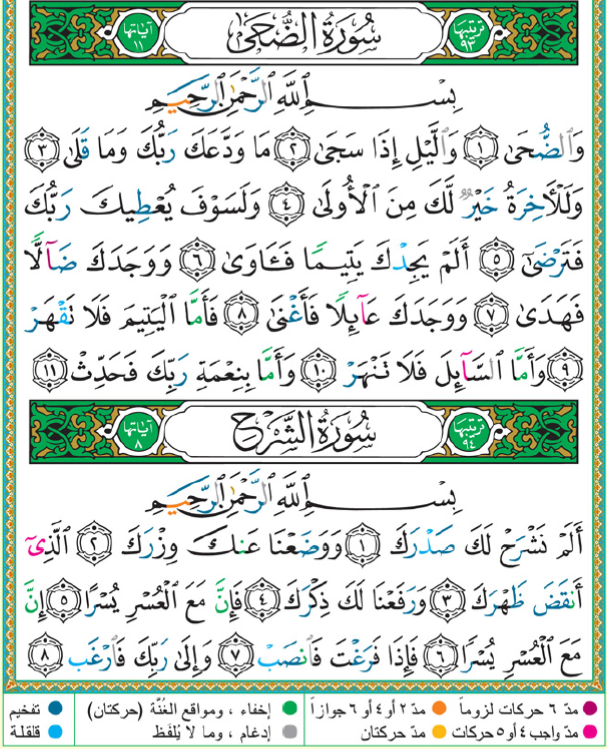 ترتيبها ٩٣ سُورَةُ الضُّحَىٰ آياتها ١١
بِسْمِ ٱللَّهِ ٱلرَّحْمَٰنِ ٱلرَّحِيمِ
وَٱلضُّحَىٰ ١ وَٱلَّيْلِ إِذَا سَجَىٰ ٢ مَا وَدَّعَكَ رَبُّكَ وَمَا قَلَىٰ ٣
وَلَلْـَٔاخِرَةُ خَيْرٌ لَّكَ مِنَ ٱلْأُولَىٰ ٤ وَلَسَوْفَ يُعْطِيكَ رَبُّكَ
فَتَرْضَىٰٓ ٥ أَلَمْ يَجِدْكَ يَتِيمًا فَـَٔاوَىٰ ٦ وَوَجَدَكَ ضَآلًّا
فَهَدَىٰ ٧ وَوَجَدَكَ عَآئِلًا فَأَغْنَىٰ ٨ فَأَمَّا ٱلْيَتِيمَ فَلَا تَقْهَرْ
٩ وَأَمَّا ٱلسَّآئِلَ فَلَا تَنْهَرْ ١٠ وَأَمَّا بِنِعْمَةِ رَبِّكَ فَحَدِّثْ ١١
ترتيبها ٩٤ سُورَةُ الشَّرْحِ آياتها ٨
بِسْمِ ٱللَّهِ ٱلرَّحْمَٰنِ ٱلرَّحِيمِ
أَلَمْ نَشْرَحْ لَكَ صَدْرَكَ ١ وَوَضَعْنَا عَنكَ وِزْرَكَ ٢ ٱلَّذِىٓ
أَنقَضَ ظَهْرَكَ ٣ وَرَفَعْنَا لَكَ ذِكْرَكَ ٤ فَإِنَّ مَعَ ٱلْعُسْرِ يُسْرًا ٥ إِنَّ
مَعَ ٱلْعُسْرِ يُسْرًا ٦ فَإِذَا فَرَغْتَ فَٱنصَبْ ٧ وَإِلَىٰ رَبِّكَ فَٱرْغَب ٨
مدّ ٦ حركات لزوماً مدّ ٢ أو ٤ أو ٦ جوازاً إخفاء ، ومواقع الغُنَّة (حركتان) تفخيم
مدّ واجب ٤ أو ٥ حركات مدّ حركتان إدغام ، وما لا يُلفَظ قلقلة